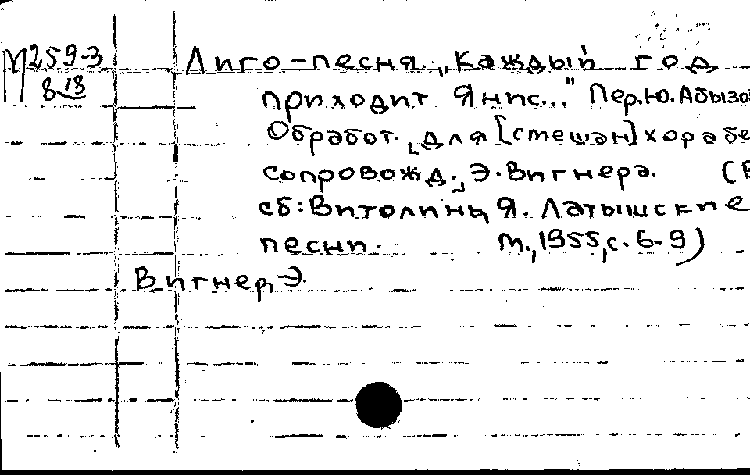 М259-3 Лиго-песня „Каждый год
8-18 приходит Янис..." Пер. Ю. Абызо
Обработ. для [смешан] хора бе
сопровожд. Э. Вигнера. (В
сб: Витолинь Я. Латышские
песни. М., 1955, с. 6-9)
Вигнер, Э.